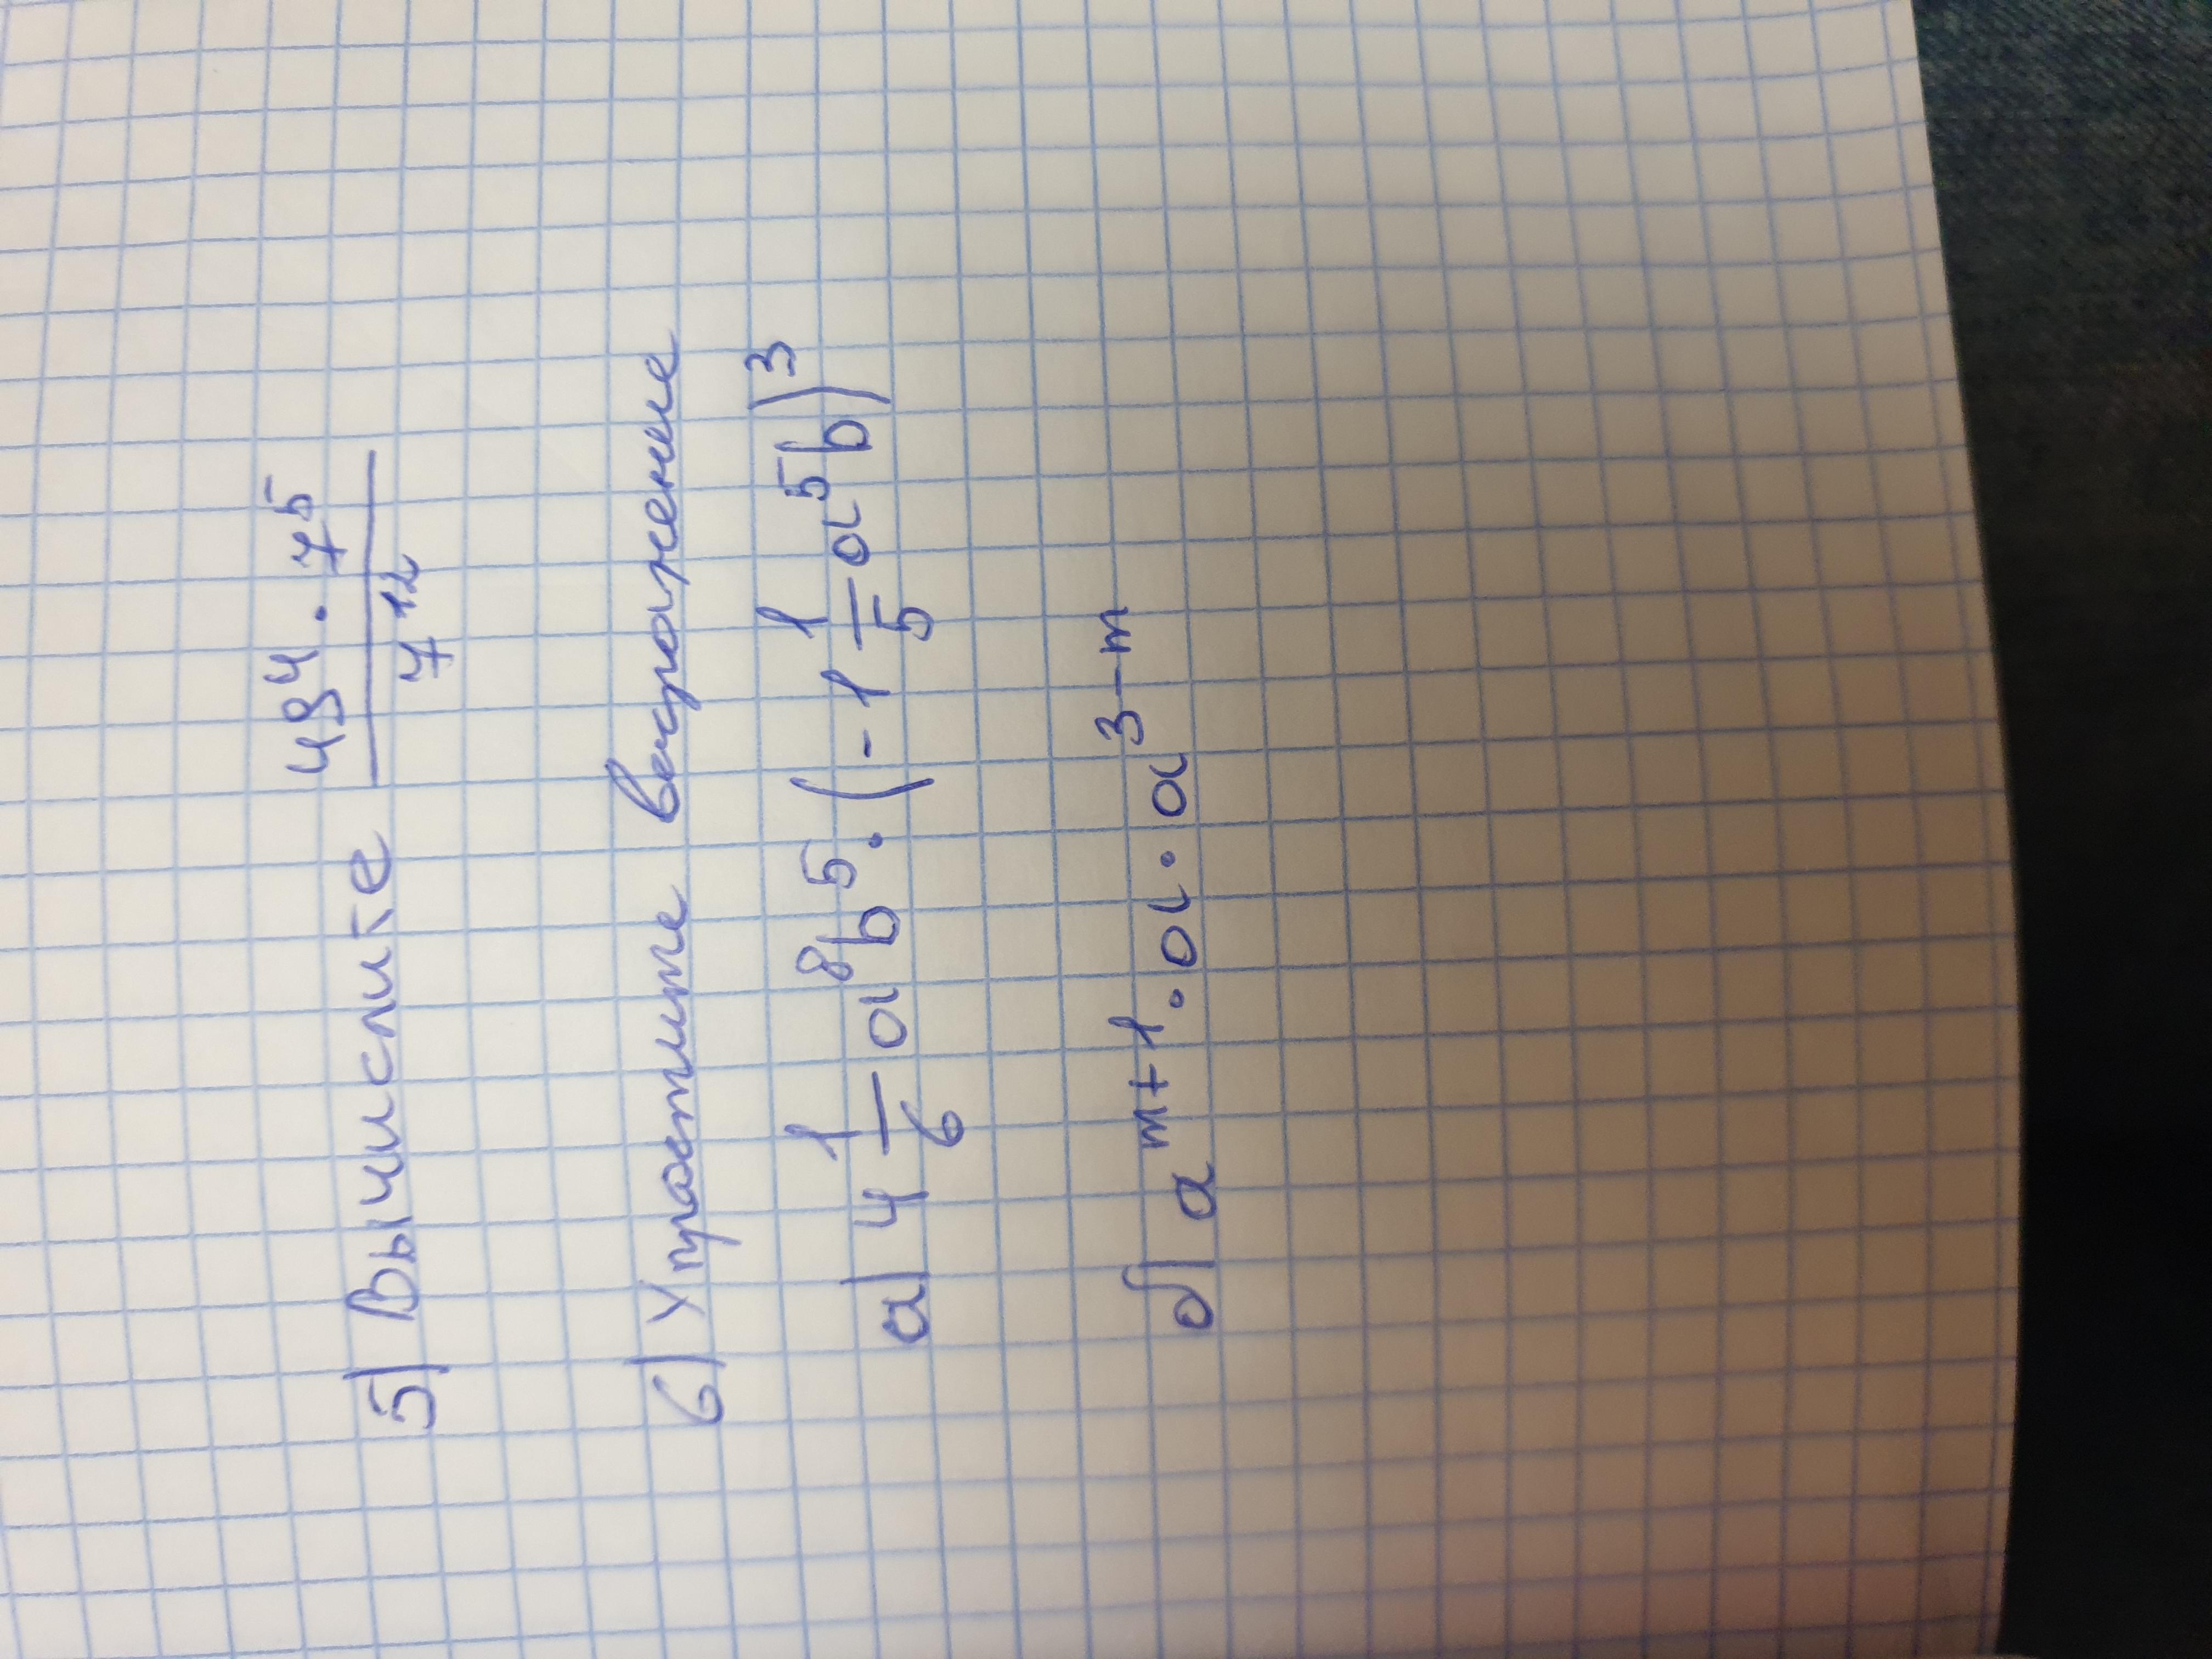 5) Вычислите 49⁴ · 7⁵ / 7¹²
6) Упростите выражение
а) 4 1/6 a⁸b⁵ · (-1 1/5 a⁵b)³
б) a^(m+1) · a · a^(3-m)